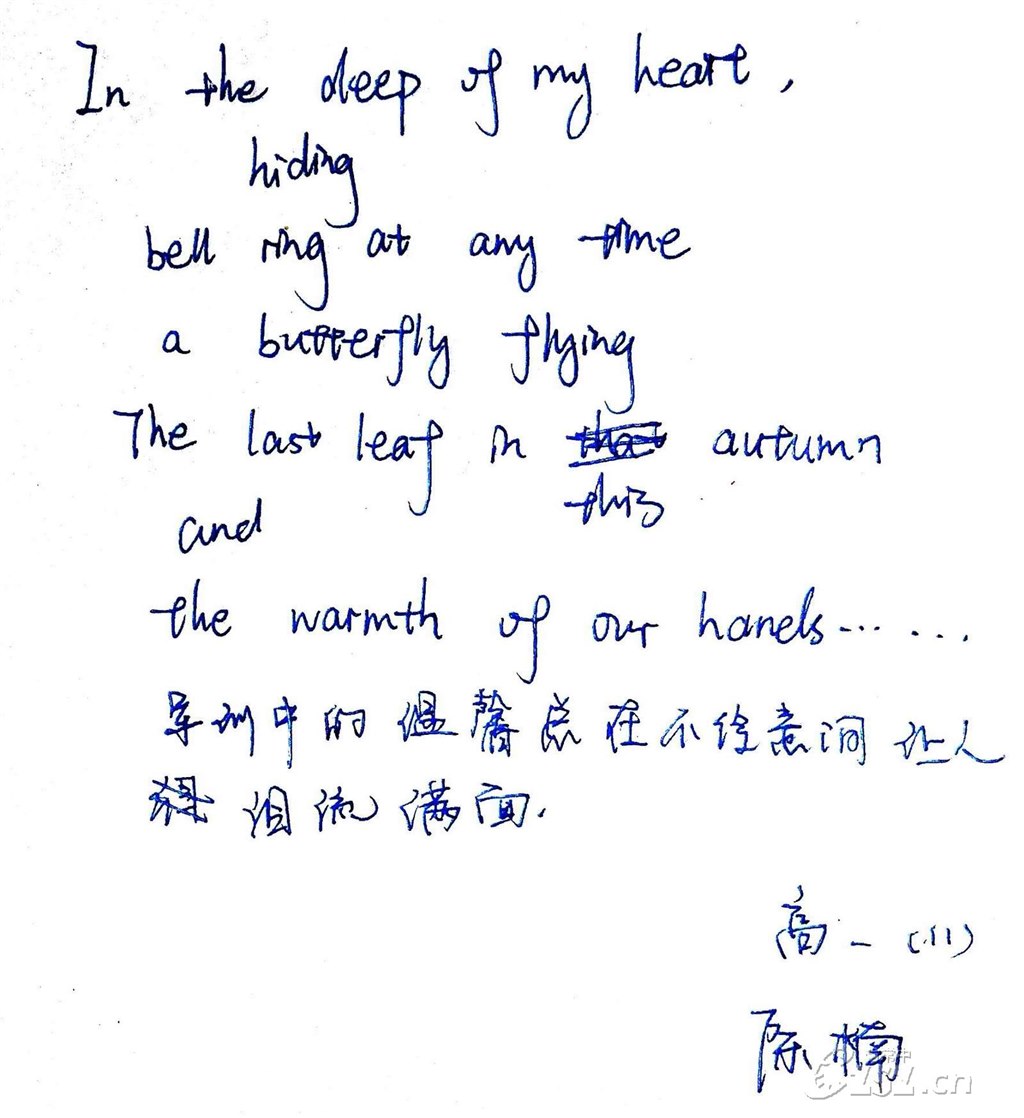 In the deep of my heart,
hiding
bell ring at any time
a butterfly flying
The last leaf in that autumn
this
and
the warmth of our hands……
军训中的温馨总在不经意间让人
泪流满面.
高一(11)
陈楠
ZOL.cn